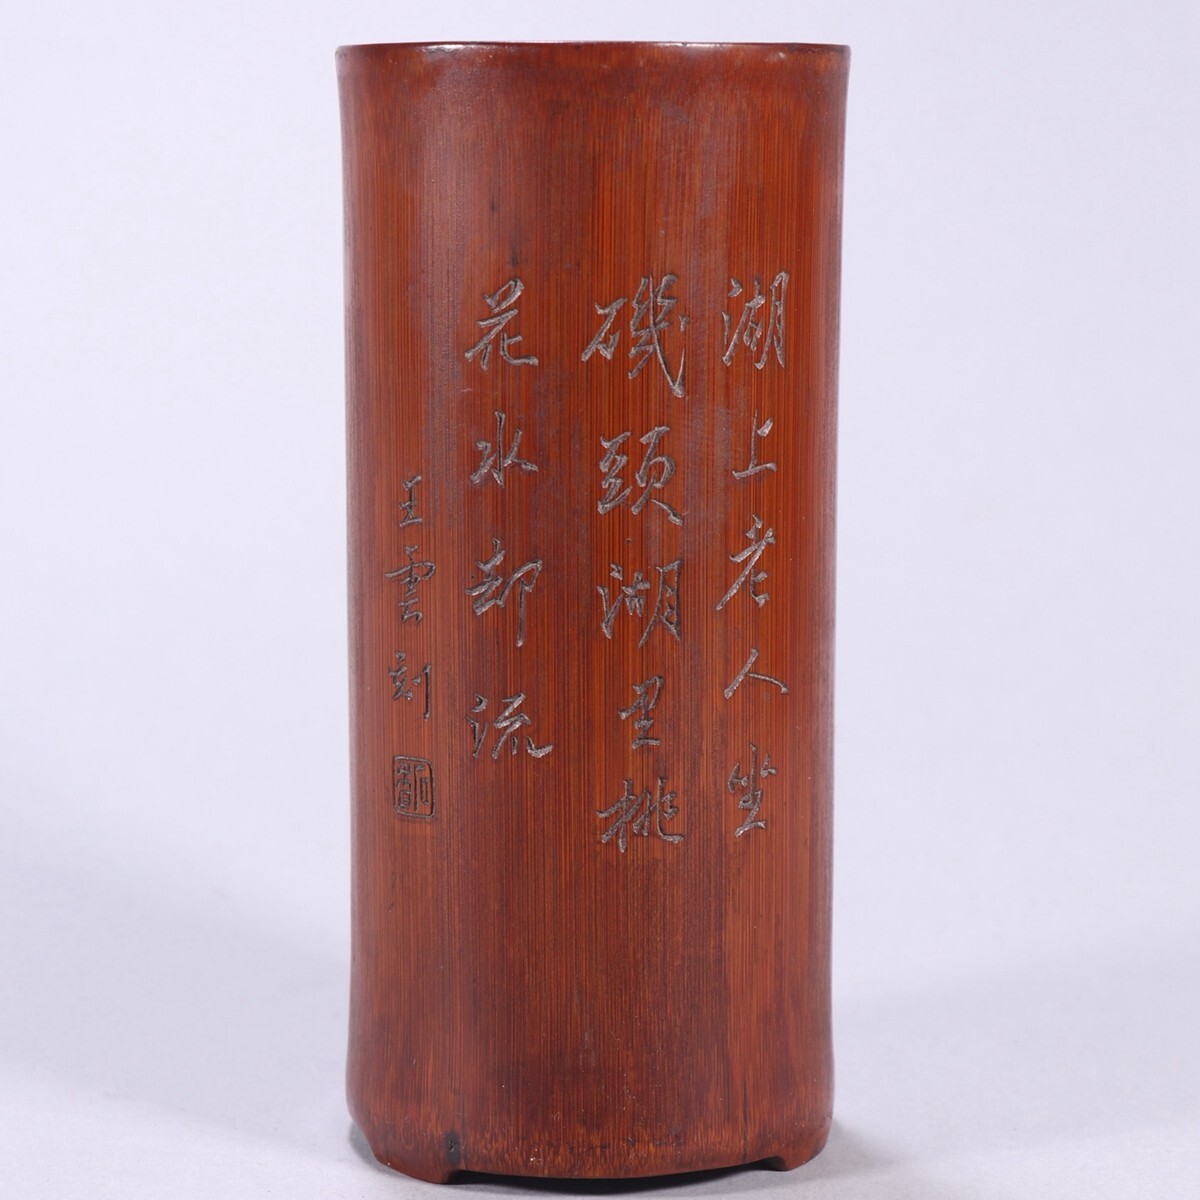 湖上老人坐
磯頭湖里桃
花水却流
王雲刻